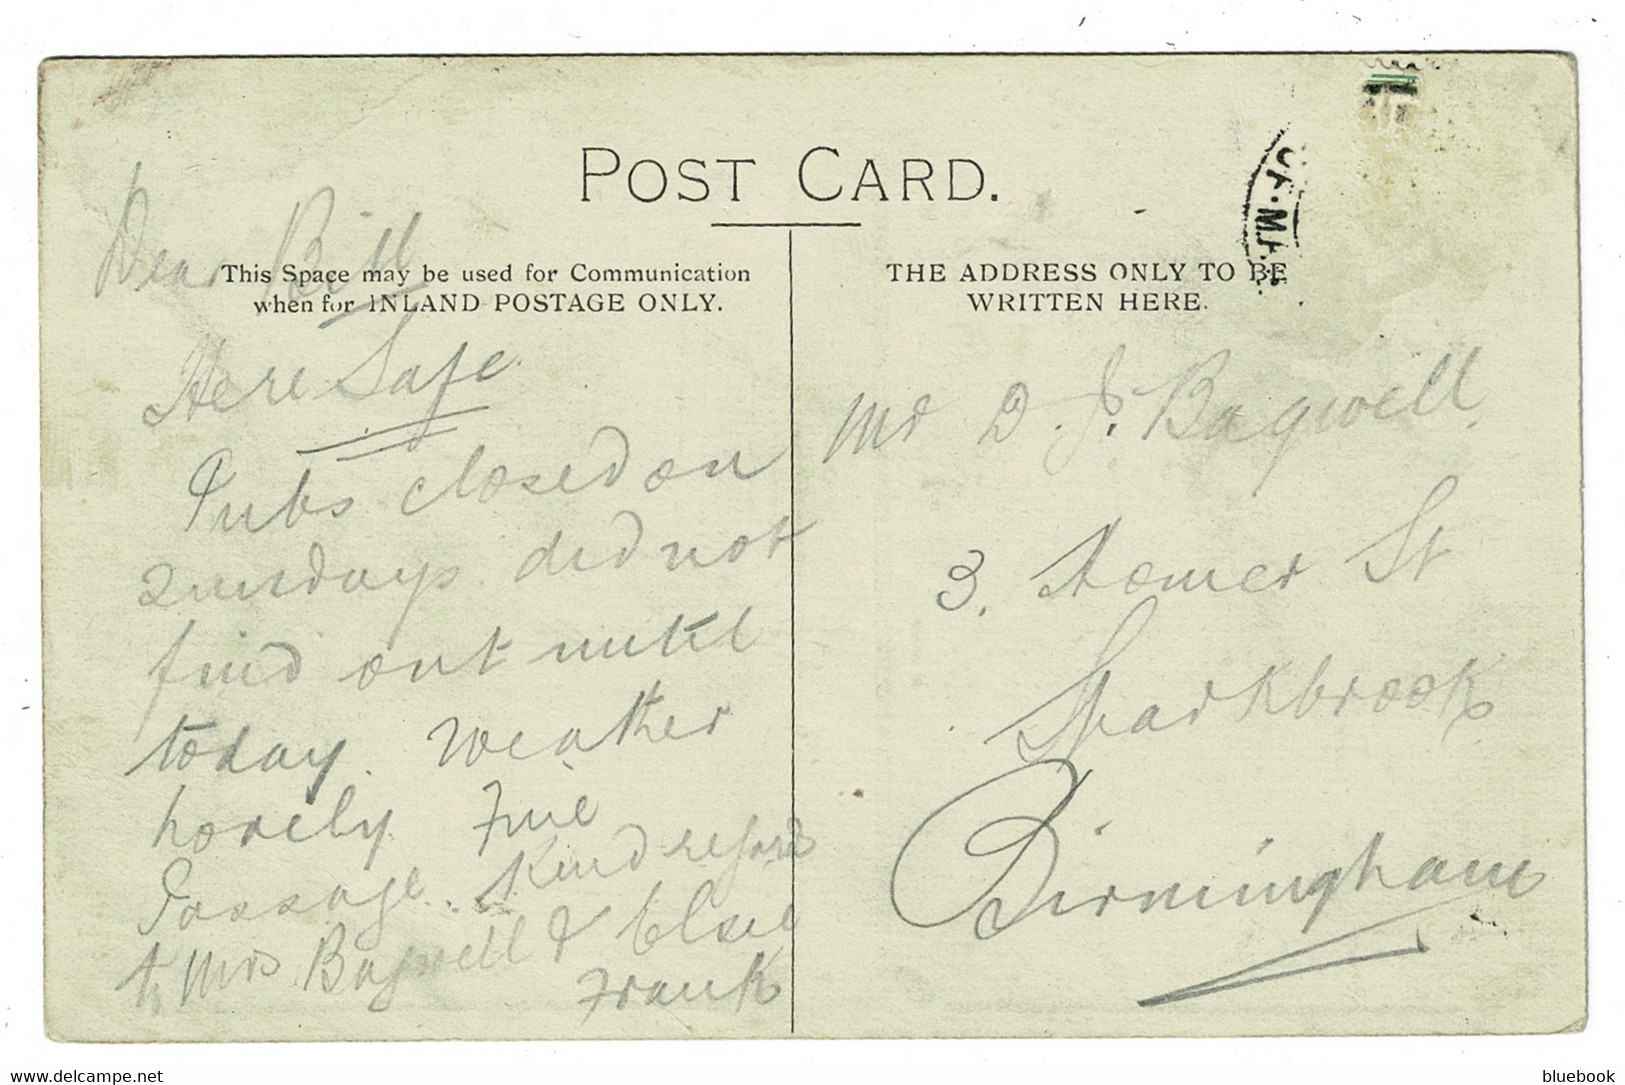 POST CARD.
This Space may be used for Communication
when for INLAND POSTAGE ONLY.
THE ADDRESS ONLY TO BE
WRITTEN HERE.
Dear Bill
Here Safe.
Pubs closed on
Sundays did not
find out until
today. Weather
lovely Fine
Passage. Kind regards
to Mrs Bagwell & Elsie
Frank
Mr D. J. Bagwell.
3. Homer St
Sparkbrook
Birmingham
delcampe.net
bluebook